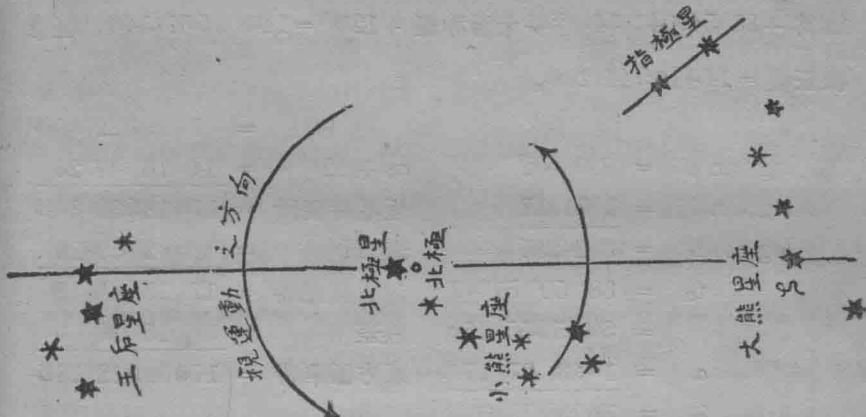 指極星
視運動之方向
王后星座
北極星
北極
小熊星座
大熊星座
ζ